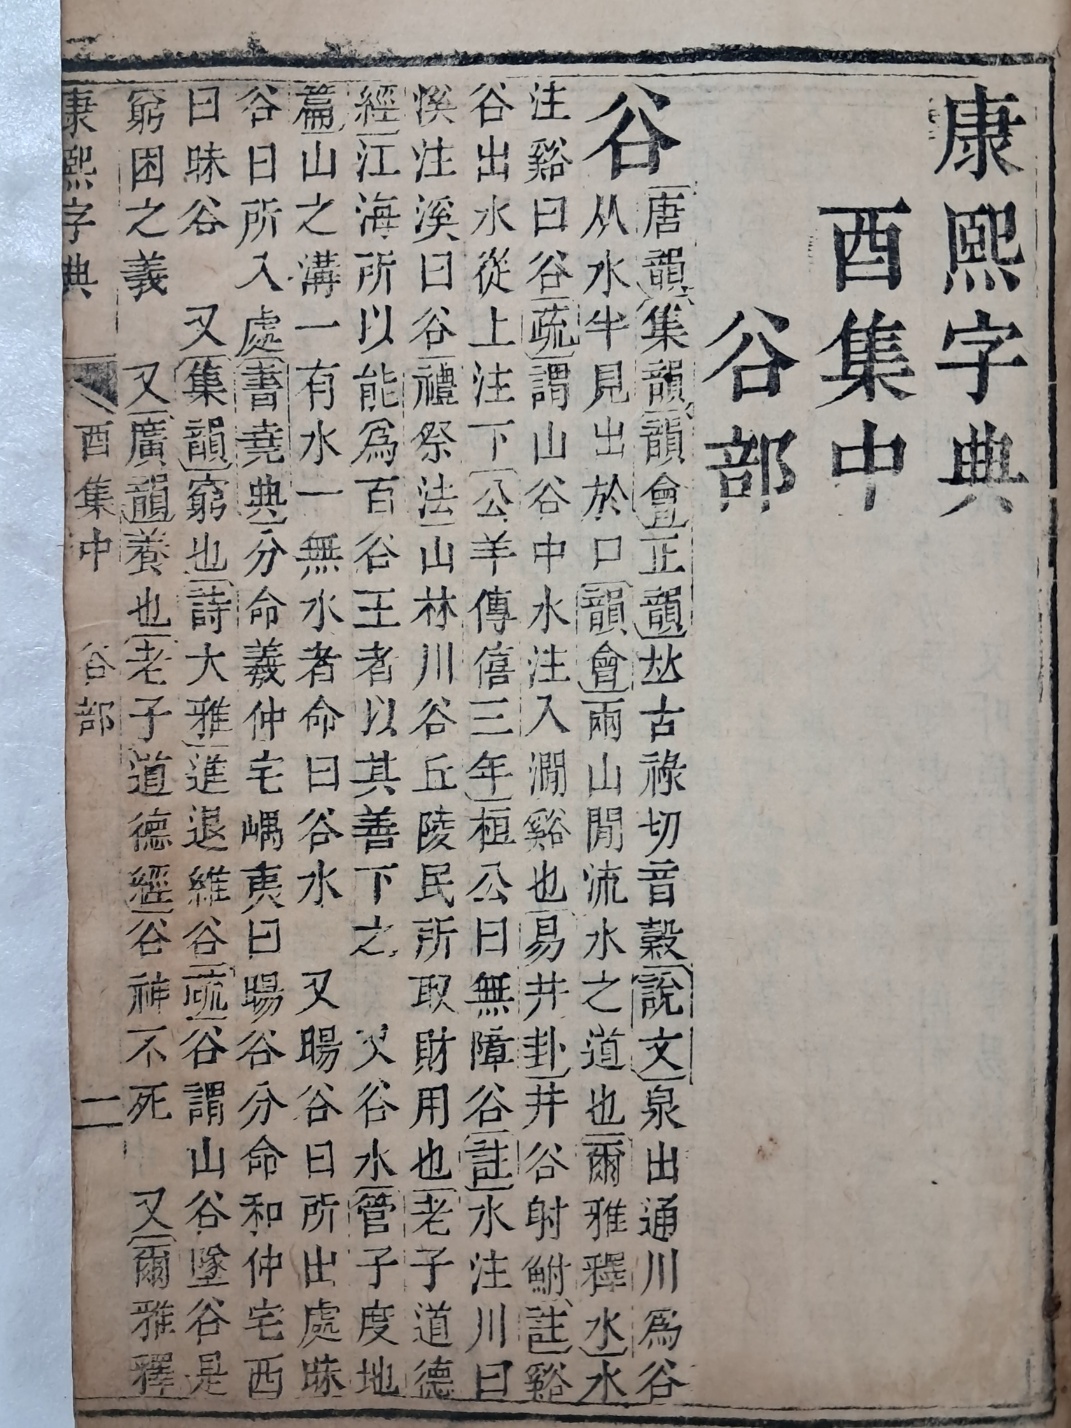 康熙字典
酉集中
谷部
谷
唐韻集韻韻會正韻𠀤古祿切音穀說文泉出通川爲谷
从水半見出於口韻會兩山閒流水之道也爾雅釋水水
注谿曰谷疏謂山谷中水注入澗谿也易井卦井谷射鮒註谿
谷出水從上注下公羊傳僖三年桓公曰無障谷註水注川曰
溪注溪曰谷禮祭法山林川谷丘陵民所取財用也老子道德
經江海所以能爲百谷王者以其善下之 又谷水管子度地
篇山之溝一有水一無水者命曰谷水 又暘谷日所出處昧
谷日所入處書堯典分命羲仲宅嵎夷曰暘谷分命和仲宅西
曰昧谷 又集韻窮也詩大雅進退維谷疏谷謂山谷墜谷是
窮困之義 又廣韻養也老子道德經谷神不死 又爾雅釋
康熙字典 酉集中 谷部 二